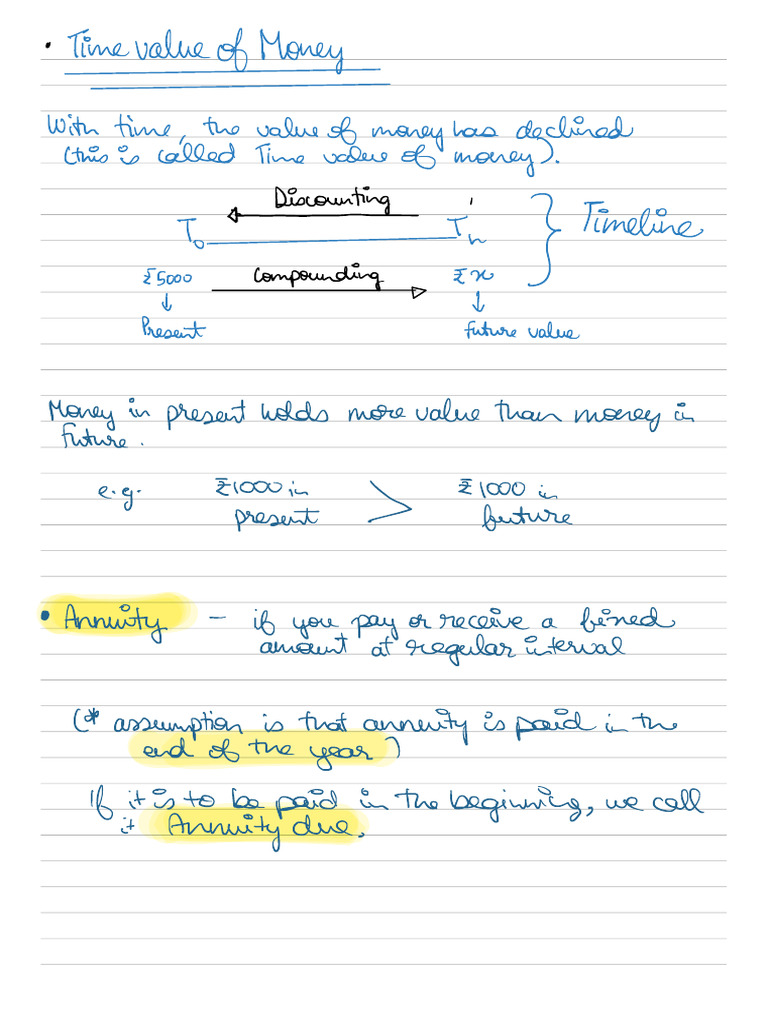 • Time value of Money
With time, the value of money has declined
(this is called Time value of money).
Discounting
T₀ Tₙ } Timeline
₹5000 Compounding ₹x
↓ ↓
Present Future value
Money in present holds more value than money in
future.
e.g. ₹1000 in > ₹1000 in
present future
• Annuity – if you pay or receive a fixed
amount at regular interval
(* assumption is that annuity is paid in the
end of the year)
If it is to be paid in the beginning, we call
it Annuity due.